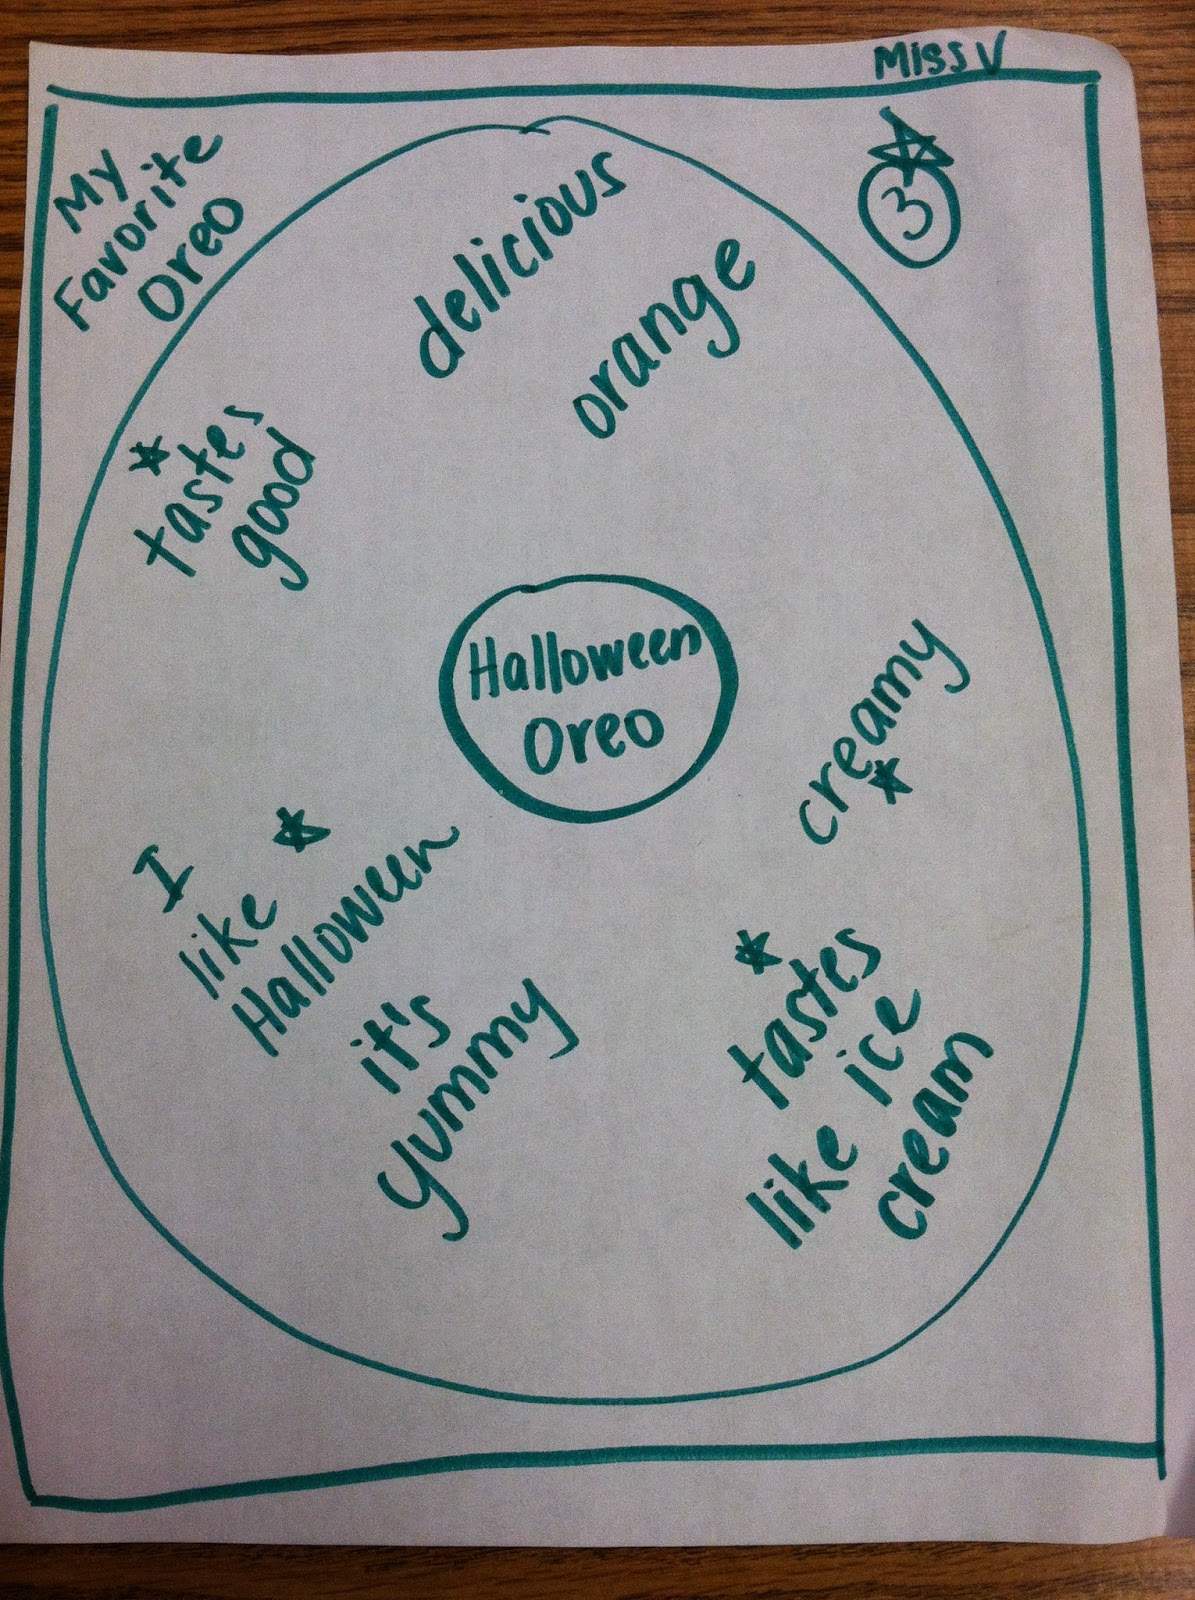 Miss V
My
Favorite
Oreo
3
delicious
orange
tastes
good
Halloween
Oreo
creamy
I
like
Halloween
it's
yummy
tastes
like ice
cream